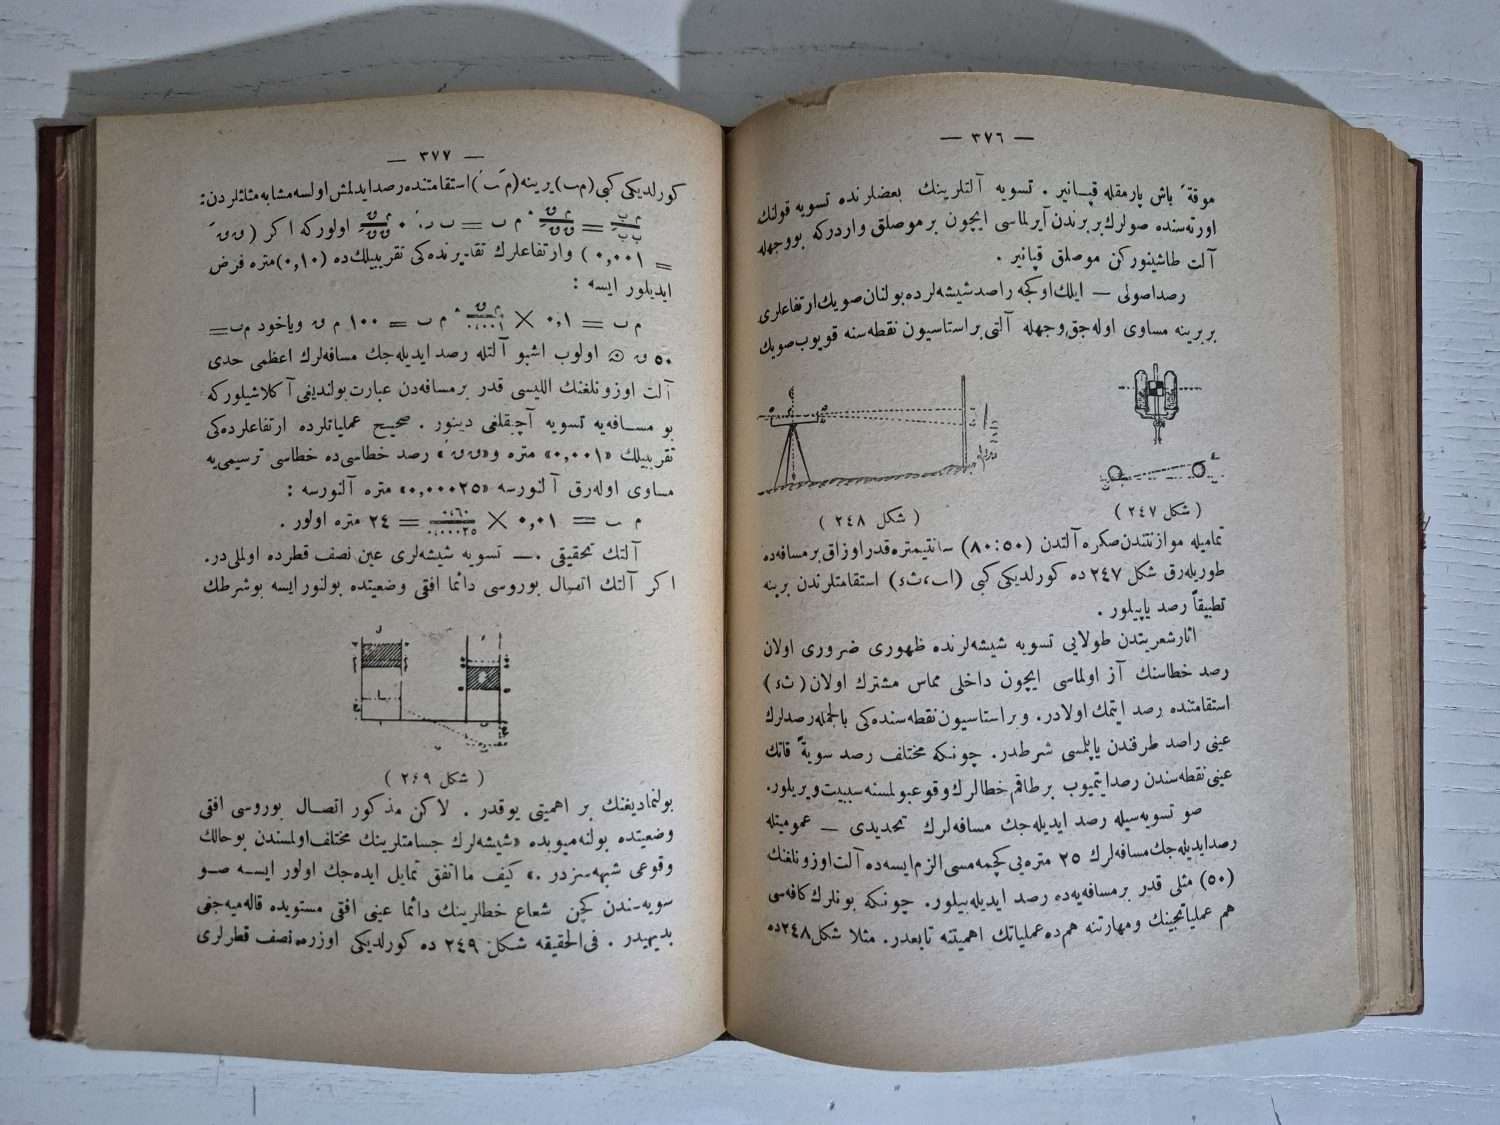 — ٣٧٦ —
موقةً باش پارمقله قپانیر . تسویه آلتلرینك بعضلرنده تسویه قولنك
اورته‌سنده صولرك بربرندن آیرلماسی ایچون برموصلق واردركه بووجهله
آلت طاشینوركن موصلق قپانیر .
رصد اصولی — ایلك اوكجه راصد شیشه‌لرده بولنان صویك ارتفاعلری
بربرینه مساوی اوله‌جق وجهله آلتی بر استاسیون نقطه‌سنه قویوب صویك
( شكل ٢٤٧ )
( شكل ٢٤٨ )
تمامیله موازنتندن صكره آلتدن (٨٠:٥٠) سانتیمتره قدر اوزاق بر مسافه‌ده
طوریله‌رق شكل ٢٤٧ ده كورلدیكی كبی (اب ، ث‌ء) استقامتلرندن برینه
تطبیقاً رصد یاپیلور .
اثار شعریتدن طولایی تسویه شیشه‌لرنده ظهوری ضروری اولان
رصد خطاسنك آز اولماسی ایچون داخلی مماس مشترك اولان (ث‌ء)
استقامتنده رصد ایتمك اولادر. وبر استاسیون نقطه‌سنده‌كی بالجمله رصدلرك
عینی راصد طرفندن یاپلمسی شرطدر. چونكه مختلف رصد سویهٔ قاتك
عینی نقطه‌سندن رصد ایتمیوب برطاقم خطالرك وقوعبولمسنه سببیت ویریلور.
صو تسویه‌سیله رصد ایدیله‌جك مسافه‌لرك تحدیدی — عمومیتله
رصد ایدیله‌جك مسافه‌لرك ٢٥ متره‌یی كچمه‌مسی الزم ایسه‌ده آلت اوزونلغنك
(٥٠) مثلی قدر بر مسافه‌یه‌ده رصد ایدیله‌بیلور. چونكه بونلرك كافه‌سی
هم عملیاتجینك ومهارتنه هم‌ده عملیاتك اهمیتنه تابعدر. مثلا شكل ٢٤٨ ده
— ٣٧٧ —
كورلدیكی كبی (م‌ب) یرینه (مَ بَ) استقامتنده رصد ایدلمش اولسه مشابه مثلثلردن :
اولوركه اكر (ق قَ
= ٠,٠٠١ ) وارتفاعلرك تقدیرنده‌كی تقریبیلك‌ده (٠,١٠) متره فرض
ایدیلور ایسه :
م ب = ٠,١ × م ق / ٠,٠٠١ . م ب = ١٠٠ م ق ویاخود م‌ب =
٥٠ ق اولوب اشبو آلتله رصد ایدیله‌جك مسافه‌لرك اعظمی حدی
آلت اوزونلغنك اللیسی قدر بر مسافه‌دن عبارت بولندیغی آكلاشیلوركه
بو مسافه‌یه تسویه آچیقلغی دینور . صحیح عملیاتلرده ارتفاعلرده‌كی
تقریبیلك «٠,٠٠١» متره و «ق قَ» رصد خطاسی‌ده خطاسی ترسیمی‌یه
مساوی اوله‌رق آلنورسه «٠,٠٠٠٢٥» متره آلنورسه :
م ب = ٠,٠١ × ٠,٦٠ / ٠,٠٠٠٢٥ = ٢٤ متره اولور .
آلتك تحقیقی . — تسویه شیشه‌لری عین نصف قطرده اولملی‌در.
اكر آلتك اتصال بوروسی دائما افقی وضعیتده بولنور ایسه بو شرطك
( شكل ٢٤٩ )
بولنمادیغنك بر اهمیتی یوقدر . لاكن مذكور اتصال بوروسی افقی
وضعیتده بولنه‌میوبده «شیشه‌لرك جسامتلرینك مختلف اولمسندن بوحالك
وقوعی شبهه‌سزدر .» كیف ما اتفق تمایل ایده‌جك اولور ایسه صو
سویه‌سندن كچن شعاع خطلرینك دائما عینی افقی مستویده قاله‌میه‌جغی
بدیهیدر . فی‌الحقیقه شكل ٢٤٩ ده كورلدیكی اوزره نصف قطرلری